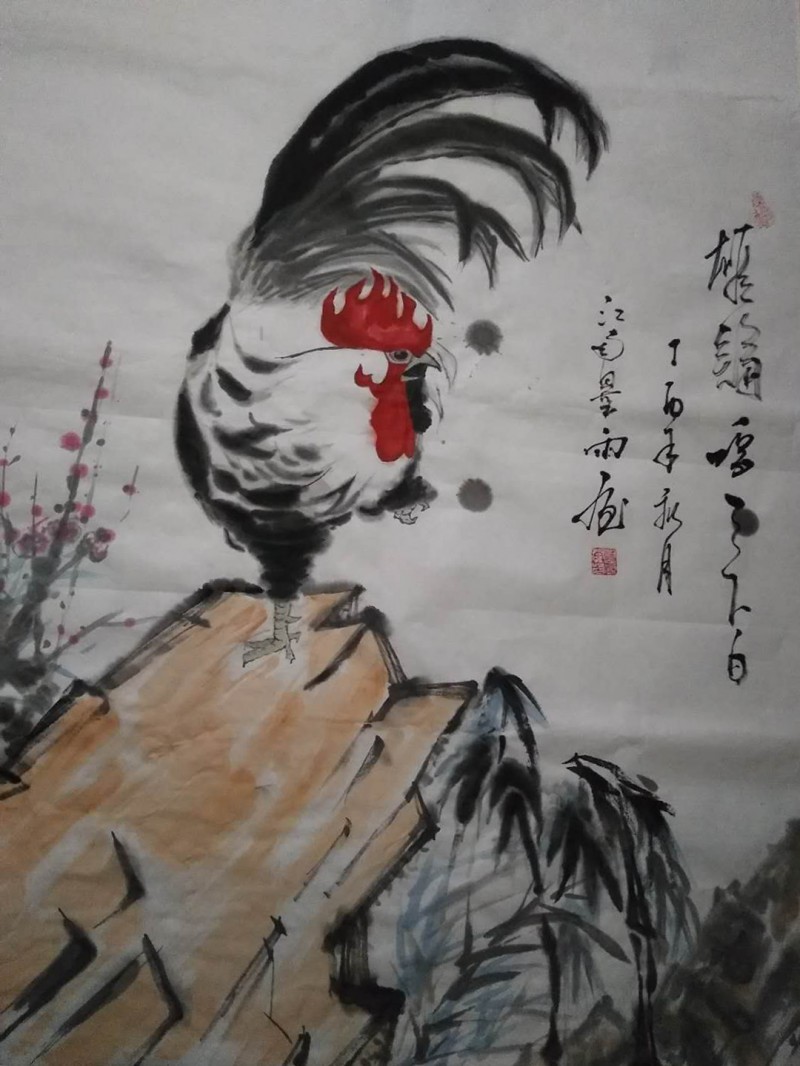 雄鷄鳴天下白
丁酉年秋月
江南墨雨